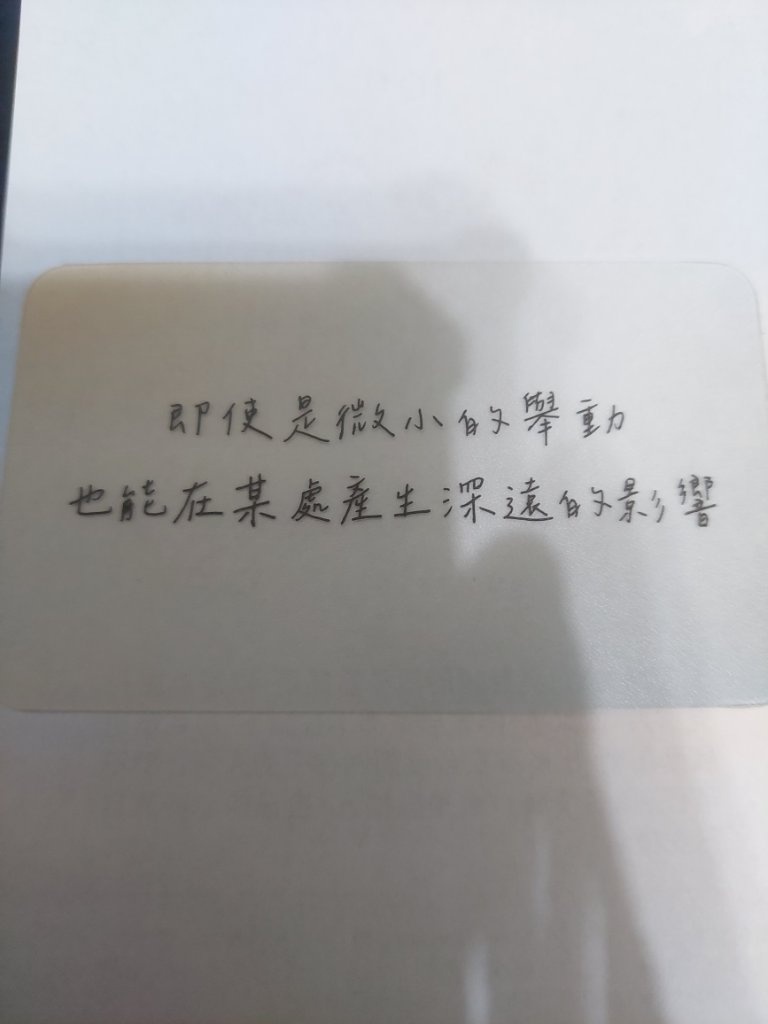 即使是微小的舉動
也能在某處產生深遠的影響